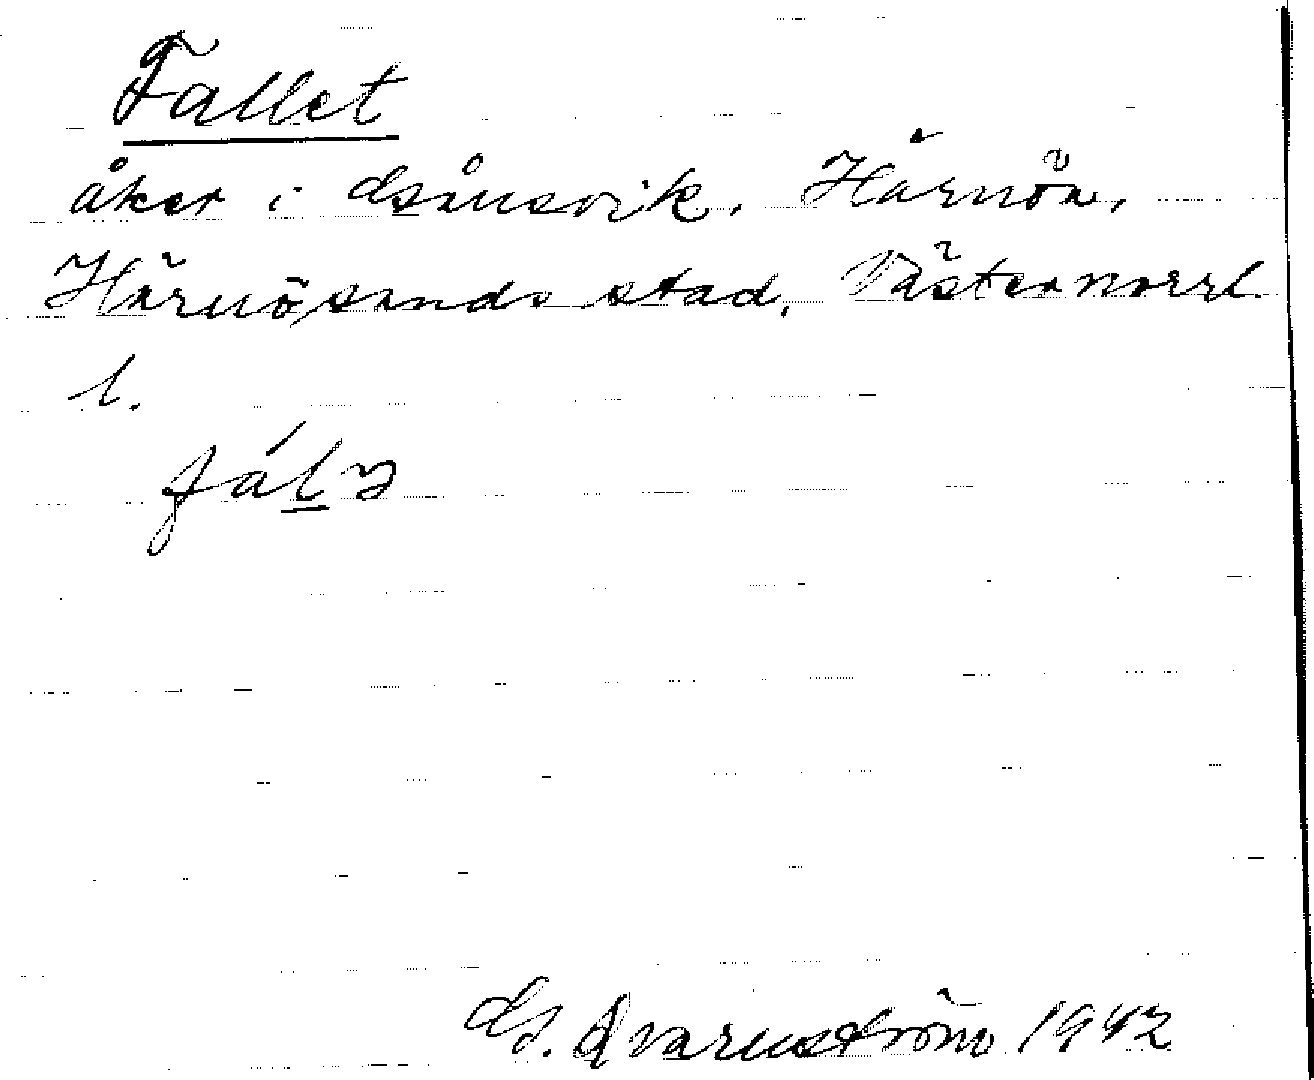 Fallet
åker i Gånsvik, Härnön,
Härnösands stad, Västernorrl.
l.
G. Qvarnström 1942